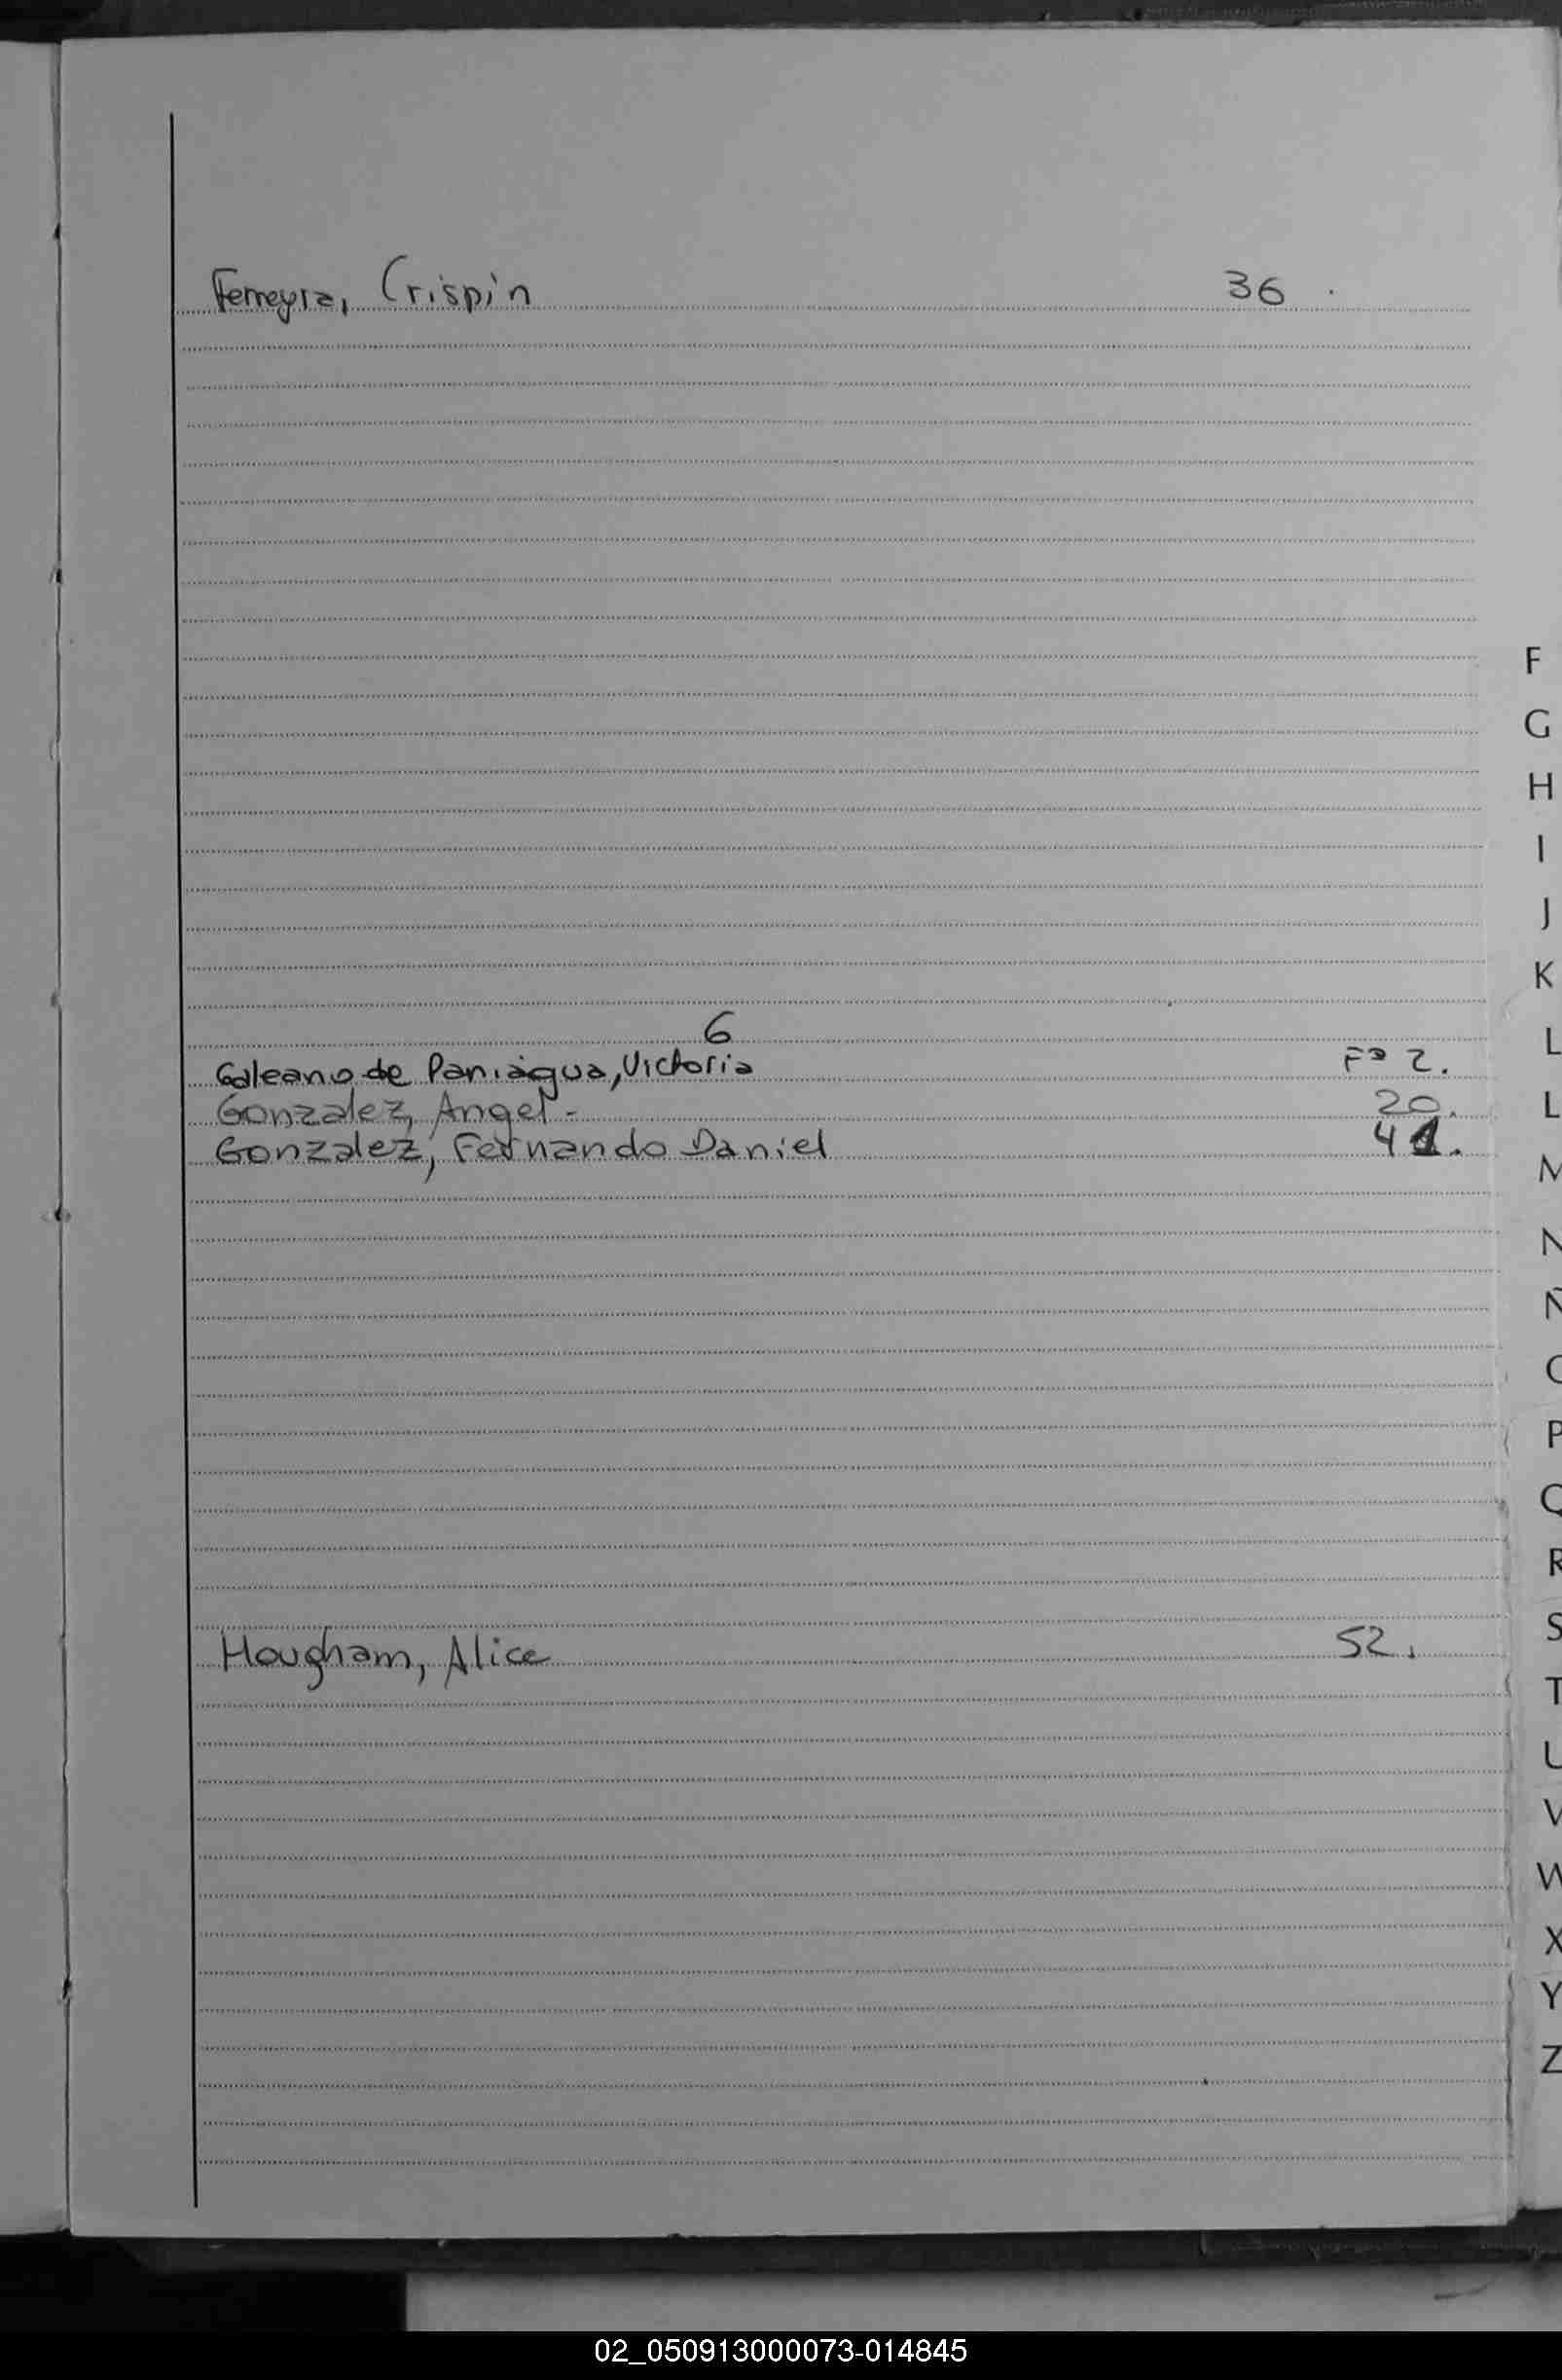 Ferreyra, Crispín 36 .
F
G
H
I
J
K
L
L
M
N
Ñ
O
P
Q
R
S
T
U
V
W
X
Y
Z
6
Galeano de Paniagua, Victoria Fº 2.
Gonzalez, Angel - 20.
Gonzalez, Fernando Daniel 41.
Hougham, Alice 52.
02_050913000073-014845